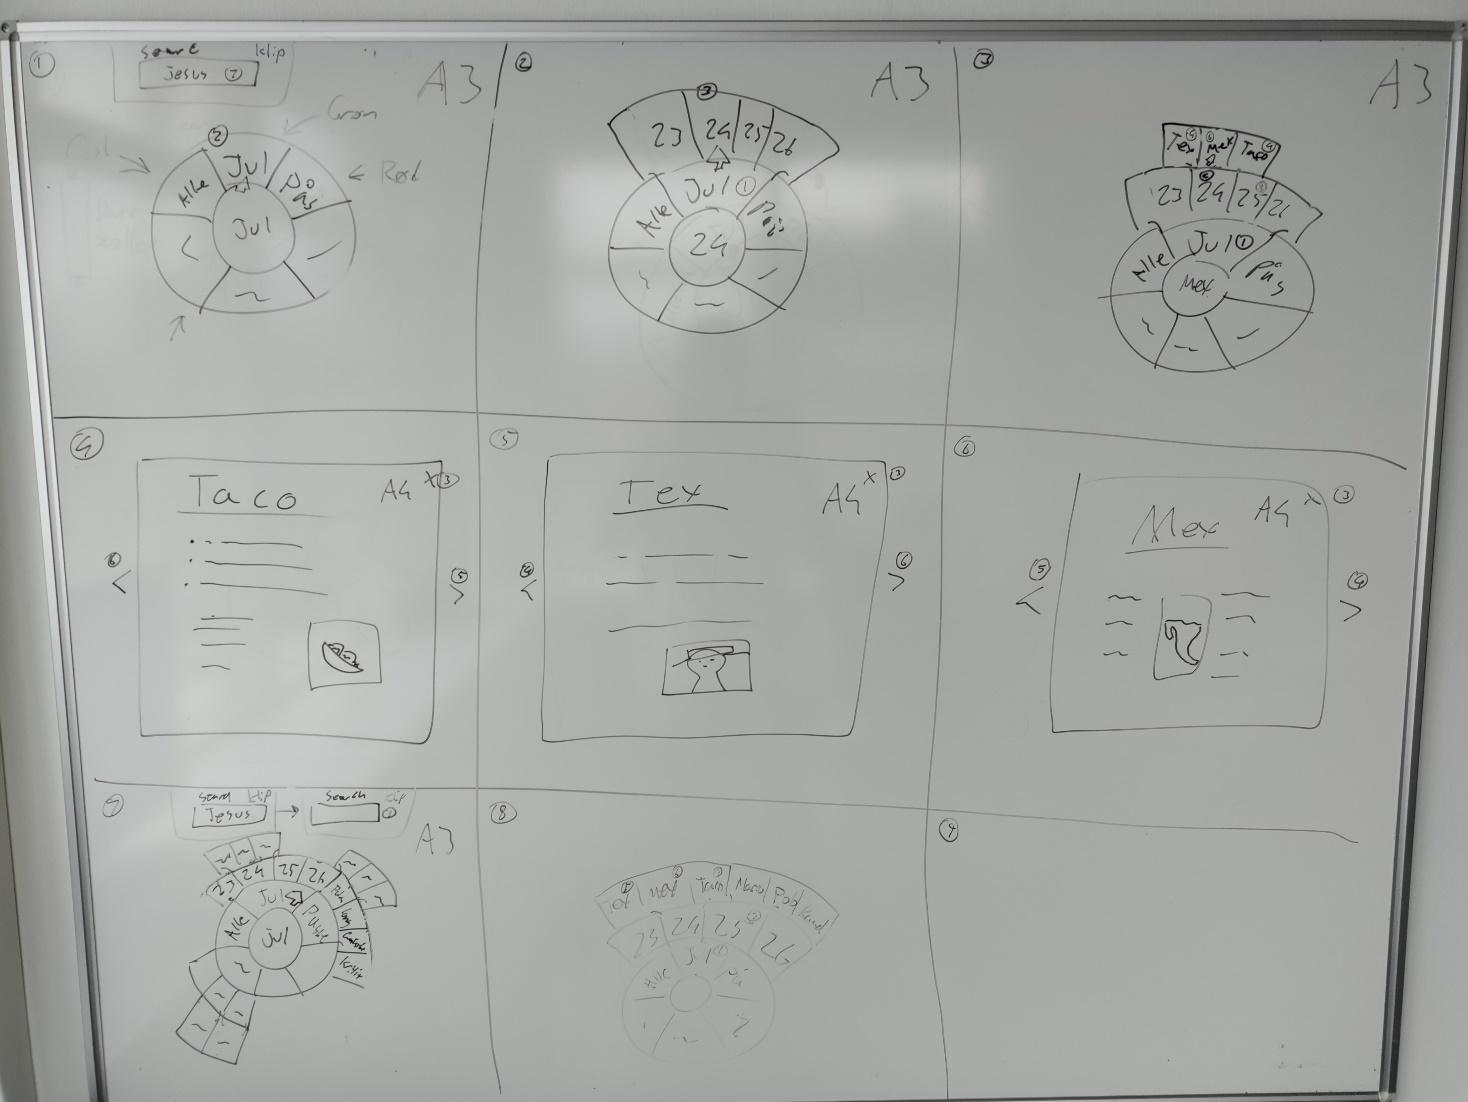 ①
Search klip
Jesus ⑦
A3
Grøn
Rød
②
Alle Jul Pås
Jul
②
A3
③
23 24 25 26
Alle Jul ① Pås
24
③
A3
Tex ⑤ Mex ⑥ Taco ④
23 24 25 26
Alle Jul ① Pås
Mex
④
Taco
A4 X ③
⑥
<
⑤
>
⑤
Tex
A4 X ③
④
<
⑥
>
⑥
Mex
A4 X ③
⑤
<
④
>
⑦
Search klip
Jesus
→
Search klip
A3
23 24 25 26
Alle Jul Påske
Jul
⑧
Tex Mex Taco
23 24 25 ③ 26
Alle Jul ① Pås
⑨